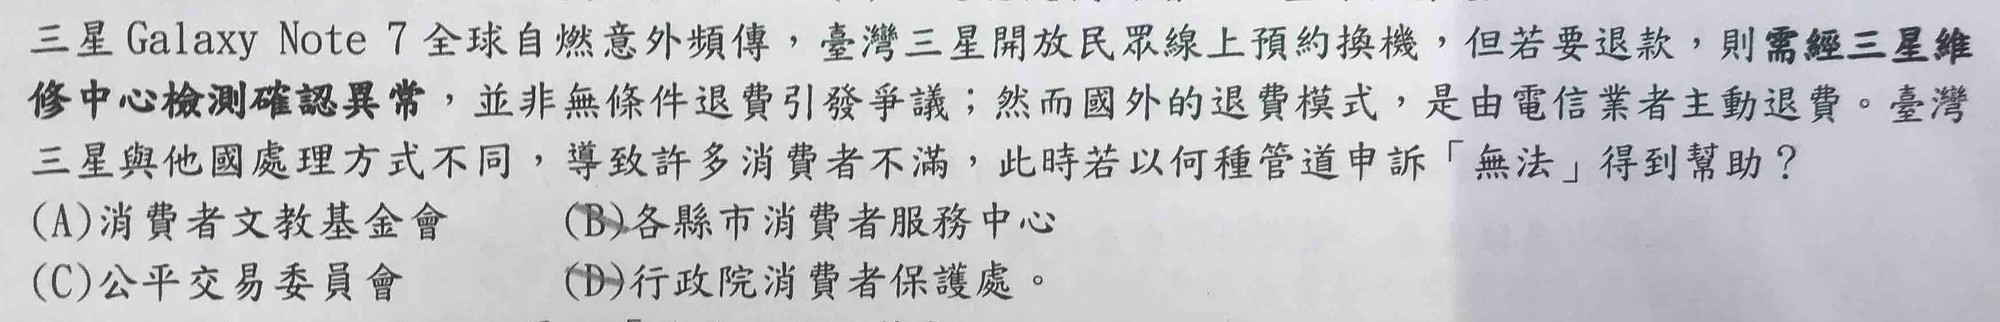 三星 Galaxy Note 7 全球自燃意外頻傳，臺灣三星開放民眾線上預約換機，但若要退款，則需經三星維
修中心檢測確認異常，並非無條件退費引發爭議；然而國外的退費模式，是由電信業者主動退費。臺灣
三星與他國處理方式不同，導致許多消費者不滿，此時若以何種管道申訴「無法」得到幫助？
(A)消費者文教基金會 (B)各縣市消費者服務中心
(C)公平交易委員會 (D)行政院消費者保護處。